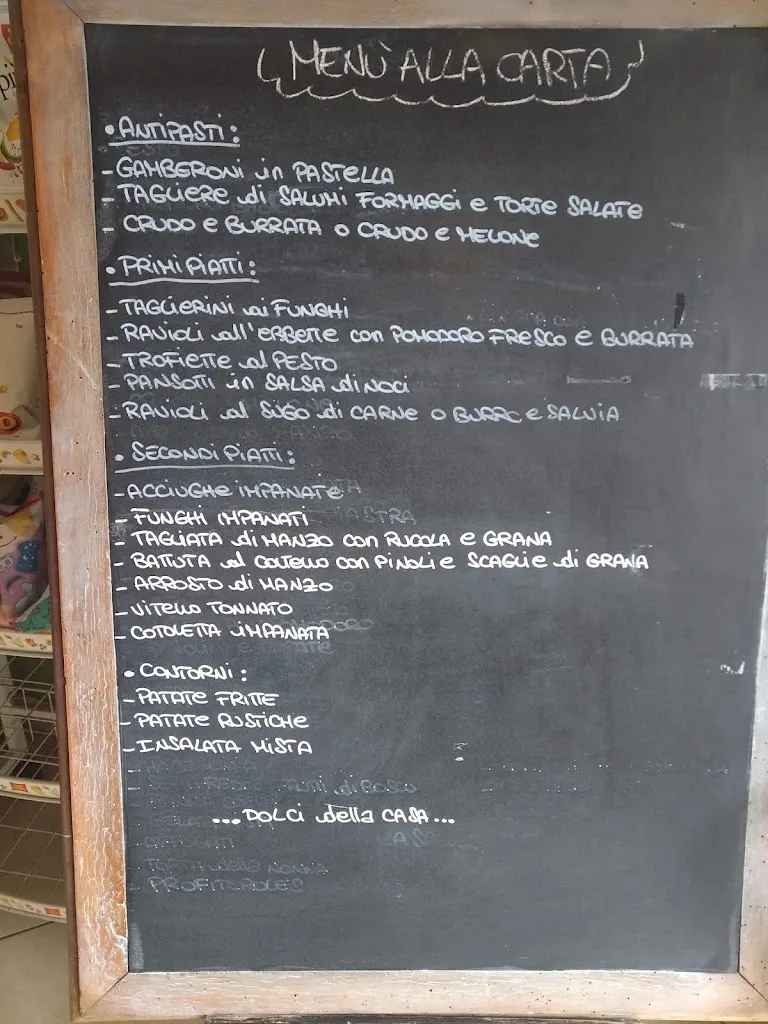 MENÙ ALLA CARTA
• ANTIPASTI:
- GAMBERONI in PASTELLA
- TAGLIERE di SALUMI FORMAGGI e TORTE SALATE
- CRUDO e BURRATA O CRUDO e MELONE
• PRIMI PIATTI:
- TAGLIERINI ai FUNGHI
- RAVIOLI all'ERBETTE con POMODORO FRESCO e BURRATA
- TROFIETTE al PESTO
- PANSOTI in SALSA di NOCI
- RAVIOLI al SUGO di CARNE O BURRO e SALVIA
• SECONDI PIATTI:
- ACCIUGHE IMPANATE
- FUNGHI IMPANATI
- TAGLIATA di MANZO con RUCOLA e GRANA
- BATTUTA al COLTELLO con PINOLI e SCAGLIE di GRANA
- ARROSTO di MANZO
- VITELLO TONNATO
- COTOLETTA IMPANATA
• CONTORNI:
- PATATE FRITTE
- PATATE RUSTICHE
- INSALATA MISTA
FRUTTI di BOSCO
...DOLCI della CASA...
- AFFOGATI
- TORTA della NONNA
- PROFITEROLES